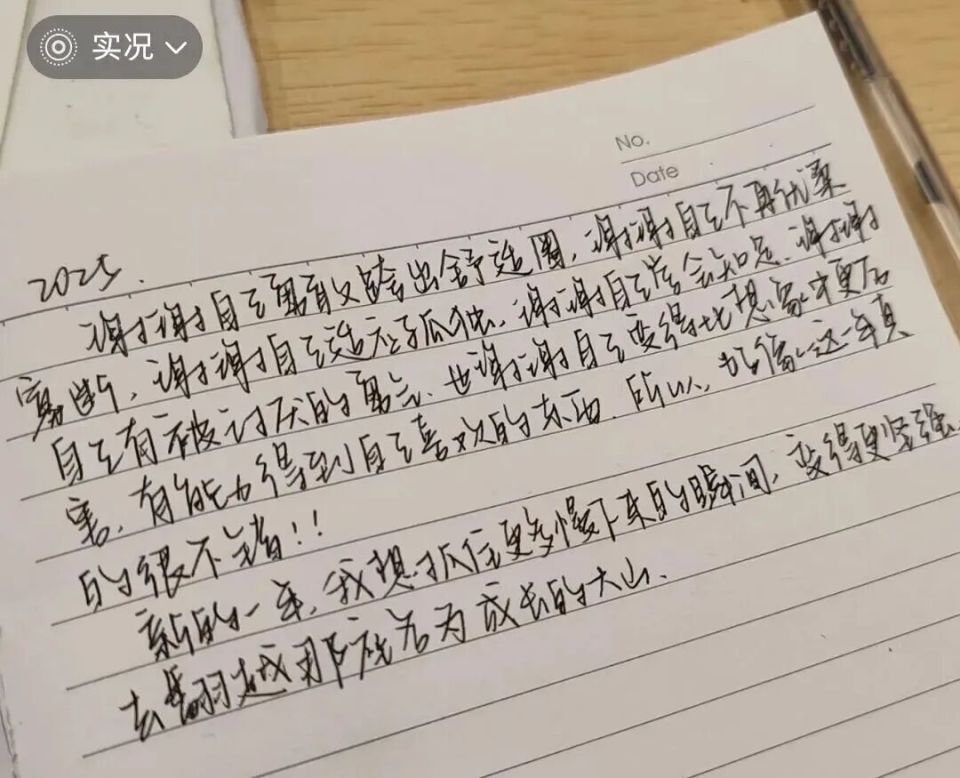 实况
No.
Date
2025.
谢谢自己勇敢跨出舒适圈,谢谢自己不再优柔
寡断,谢谢自己适应孤独.谢谢自己学会知足.谢谢
自己有被讨厌的勇气.也谢谢自己变得比想象中更厉
害.有能力得到自己喜欢的东西.所以,相信这一年真
的很不错!!
新的一年,我想抓住更多慢下来的瞬间,变得更坚强.
去翻越那座名为成长的大山.